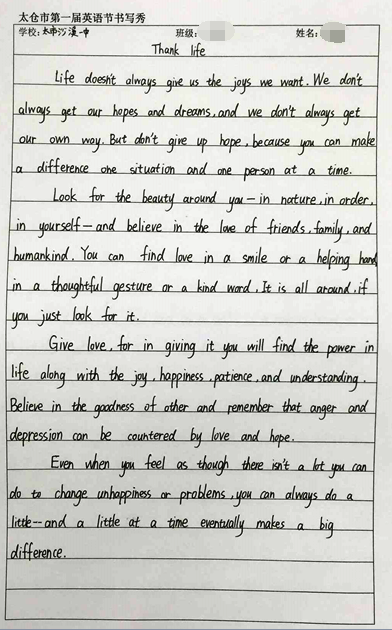 太仓市第一届英语节书写秀
学校: 太仓沙溪一中 班级: 姓名:
Thank life
Life doesn't always give us the joys we want. We don't
always get our hopes and dreams, and we don't always get
our own way. But don't give up hope, because you can make
a difference one situation and one person at a time.
Look for the beauty around you—in nature, in order,
in yourself—and believe in the love of friends, family, and
humankind. You can find love in a smile or a helping hand
in a thoughtful gesture or a kind word. It is all around, if
you just look for it.
Give love, for in giving it you will find the power in
life along with the joy, happiness, patience, and understanding.
Believe in the goodness of other and remember that anger and
depression can be countered by love and hope.
Even when you feel as though there isn't a lot you can
do to change unhappiness or problems, you can always do a
little--and a little at a time eventually makes a big
difference.